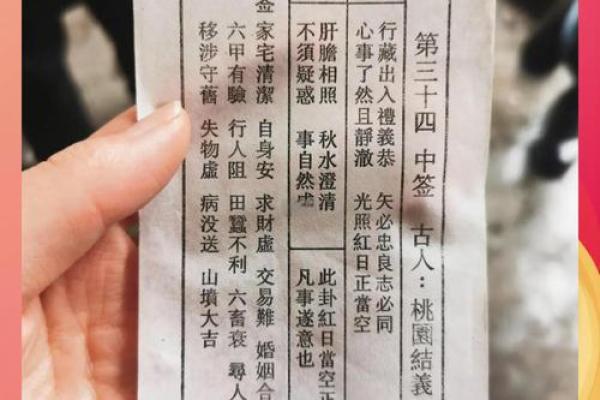 第三十四 中签 古人：桃園結義
行藏出入禮義恭 矢必忠良志必同
心事了然且靜澈 光照紅日正當空
肝膽相照 秋水澄清
不須疑惑 事自然成
此卦紅日當空正
凡事遂意也
家宅清潔 自身安 求財虛 交易難 婚姻合
六甲有驗 行人阻 田蠶不利 六畜衰 尋人
移涉守舊 失物虛 病没送 山墳大吉